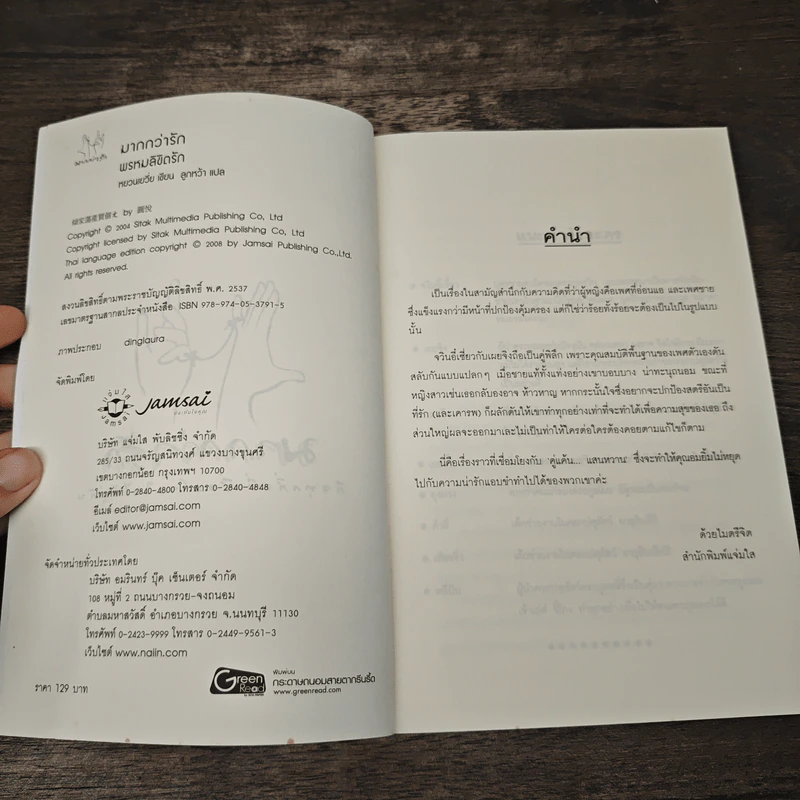 มากกว่ารัก
มากกว่ารัก
พรหมลิขิตรัก
หยวนเยวี่ย เขียน ลูกหว้า แปล
by 圓悅
Copyright © 2004 Sitak Multimedia Publishing Co, Ltd
Copyright licensed by Sitak Multimedia Publishing Co, Ltd
Thai language edition copyright © 2008 by Jamsai Publishing Co.,Ltd.
All rights reserved.
สงวนลิขสิทธิ์ตามพระราชบัญญัติลิขสิทธิ์ พ.ศ. 2537
เลขมาตรฐานสากลประจำหนังสือ ISBN 978-974-05-3791-5
ภาพประกอบ dinglaura
จัดพิมพ์โดย
แจ่มใส jamsai
jamsai
บริษัท แจ่มใส พับลิชชิ่ง จำกัด
285/33 ถนนจรัญสนิทวงศ์ แขวงบางขุนศรี
เขตบางกอกน้อย กรุงเทพฯ 10700
โทรศัพท์ 0-2840-4800 โทรสาร 0-2840-4848
อีเมล์ editor@jamsai.com
เว็บไซต์ www.jamsai.com
จัดจำหน่ายทั่วประเทศโดย
บริษัท อมรินทร์ บุ๊ค เซ็นเตอร์ จำกัด
108 หมู่ที่ 2 ถนนบางกรวย-จงถนอม
ตำบลมหาสวัสดิ์ อำเภอบางกรวย จ.นนทบุรี 11130
โทรศัพท์ 0-2423-9999 โทรสาร 0-2449-9561-3
เว็บไซต์ www.naiin.com
ราคา 129 บาท
Green Read
พิมพ์บน
กระดาษถนอมสายตากรีนรี้ด
www.greenread.com
คำนำ
เป็นเรื่องในสามัญสำนึกกับความคิดที่ว่าผู้หญิงคือเพศที่อ่อนแอ และเพศชาย
ซึ่งแข็งแรงกว่ามีหน้าที่ปกป้องคุ้มครอง แต่ก็ใช่ว่าร้อยทั้งร้อยจะต้องเป็นไปในรูปแบบ
นั้น
จวินอี้เซี่ยวกับเผยจิงถือเป็นคู่พิลึก เพราะคุณสมบัติพื้นฐานของเพศตัวเองดัน
สลับกันแบบแปลกๆ เมื่อชายแท้ทั้งแท่งอย่างเขาบอบบาง น่าทะนุถนอม ขณะที่
หญิงสาวเช่นเธอกลับองอาจ ห้าวหาญ หากกระนั้นใจซึ่งอยากจะปกป้องสตรีอันเป็น
ที่รัก (และเคารพ) ก็ผลักดันให้เขาทำทุกอย่างเท่าที่จะทำได้เพื่อความสุขของเธอ ถึง
ส่วนใหญ่ผลจะออกมาเละไม่เป็นท่าให้ใครต่อใครต้องคอยตามแก้ไขก็ตาม
นี่คือเรื่องราวที่เชื่อมโยงกับ 'คู่แค้น... แสนหวาน' ซึ่งจะทำให้คุณอมยิ้มไม่หยุด
ไปกับความน่ารักแอบขำทำไปได้ของพวกเขาค่ะ
ด้วยไมตรีจิต
สำนักพิมพ์แจ่มใส